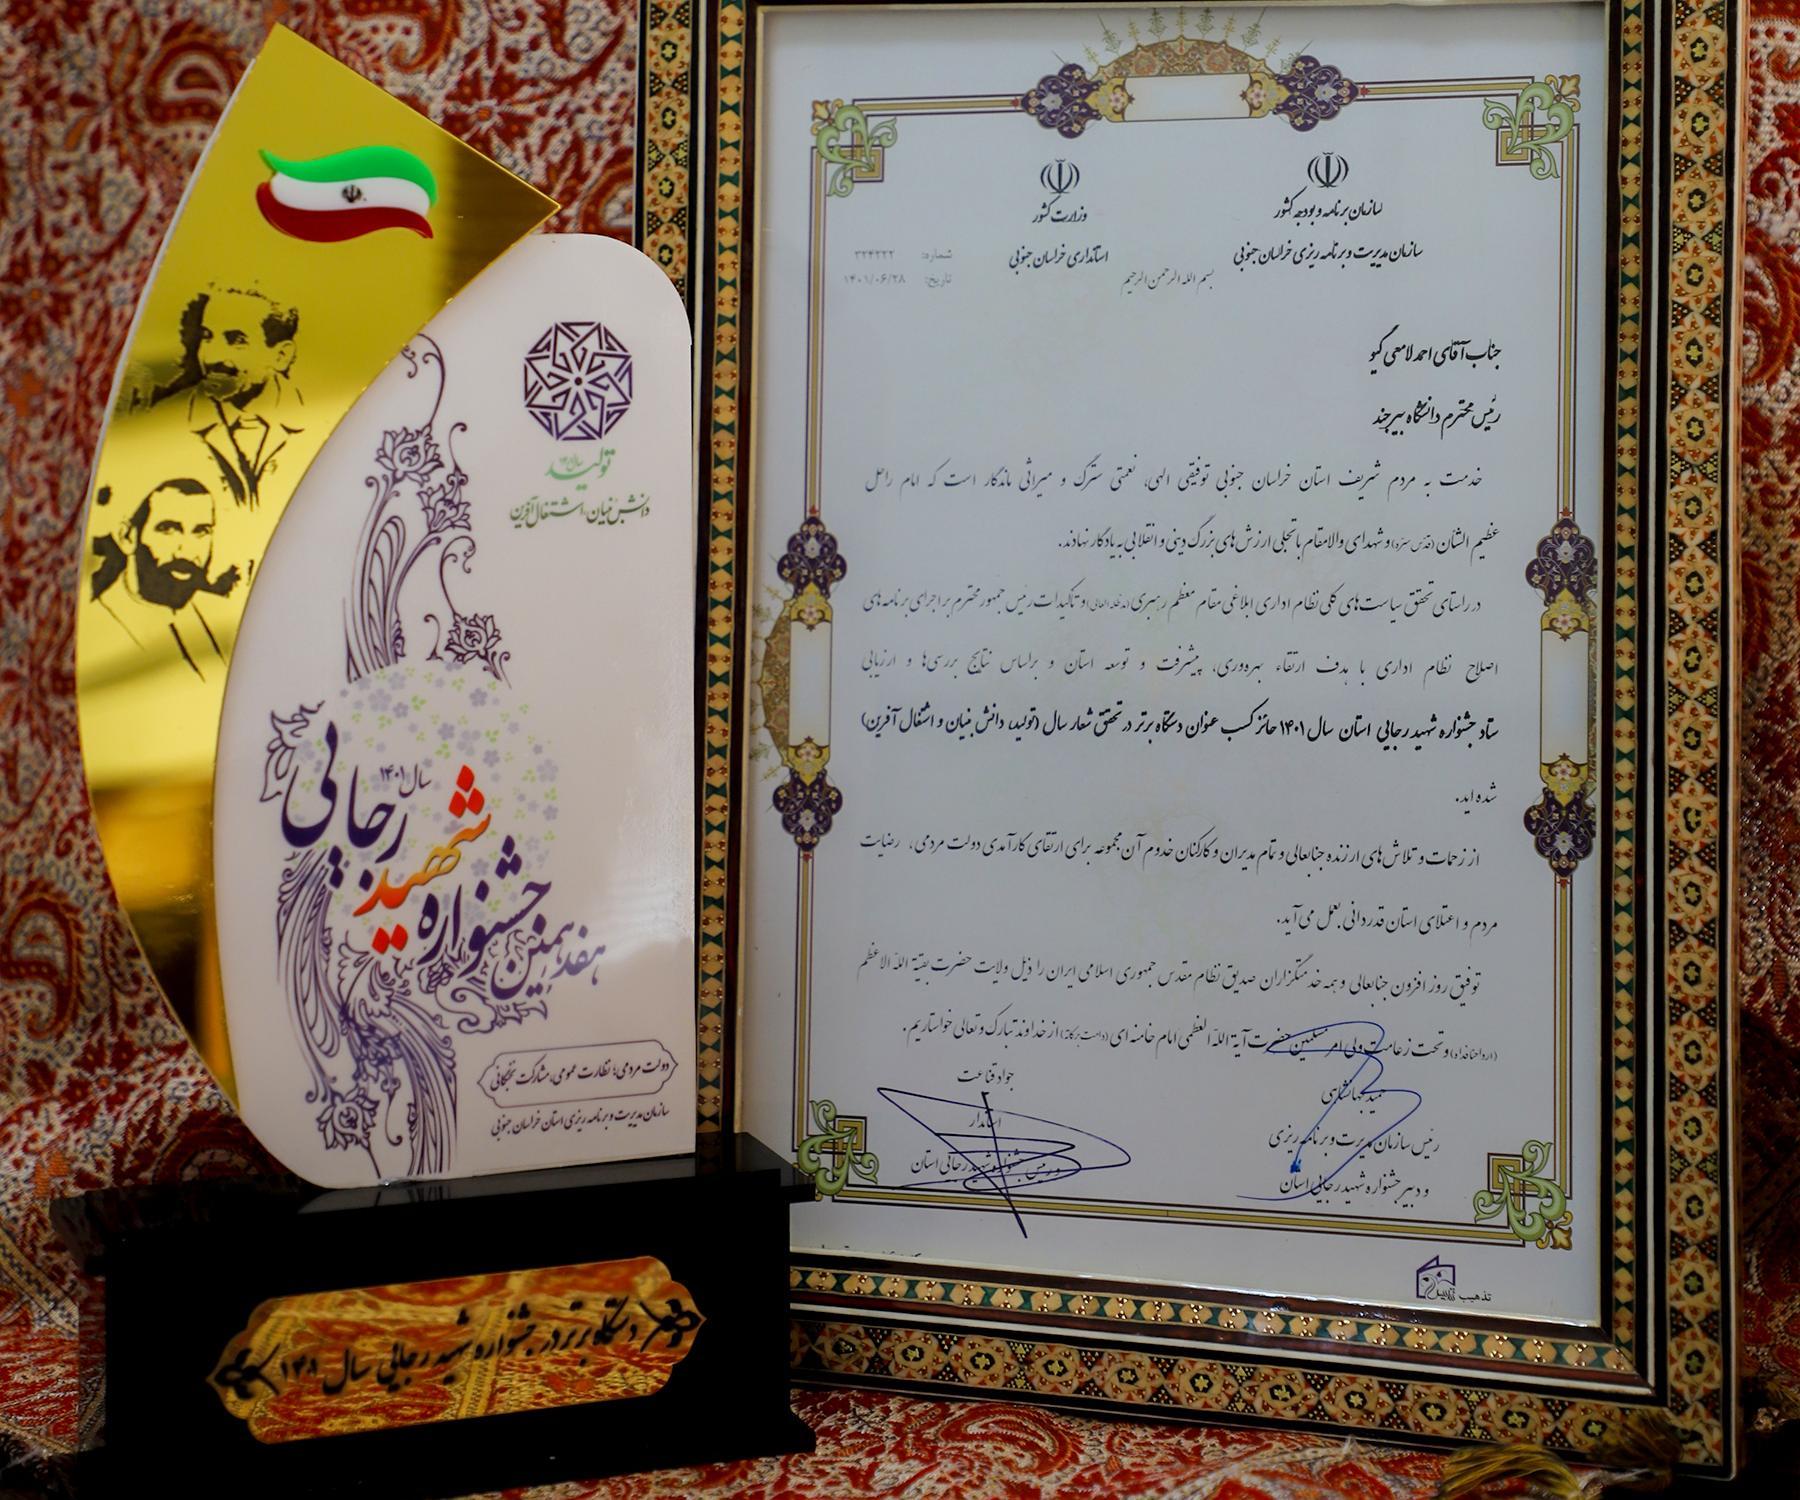 تولید
دانش بنیان، اشتغال آفرین
سال ۱۴۰۱
هفدهمین جشنواره شهید رجایی
دولت مردمی؛ نظارت عمومی، مشارکت نخبگانی
سازمان مدیریت و برنامه ریزی استان خراسان جنوبی
دستگاه برتر در جشنواره شهید رجایی سال ۱۴۰۱
سازمان برنامه و بودجه کشور
سازمان مدیریت و برنامه ریزی خراسان جنوبی
وزارت کشور
استانداری خراسان جنوبی
شماره: ۳۲۴۳۲۲
تاریخ: ۱۴۰۱/۰۶/۲۸
بسم الله الرحمن الرحیم
جناب آقای احمد لامعی گیو
رئیس محترم دانشگاه بیرجند
خدمت به مردم شریف استان خراسان جنوبی توفیقی الهی، نعمتی سترگ و میراثی ماندگار است که امام راحل
عظیم الشأن (قدس سره) و شهدای والامقام با تجلی ارزش های بزرگ دینی و انقلابی به یادگار نهادند.
در راستای تحقق سیاست های کلی نظام اداری ابلاغی مقام معظم رهبری (مدظله العالی) و تأکیدات رئیس جمهور محترم بر اجرای برنامه های
اصلاح نظام اداری با هدف ارتقاء بهره وری، پیشرفت و توسعه استان و براساس نتایج بررسی ها و ارزیابی
ستاد جشنواره شهید رجایی استان سال ۱۴۰۱ حائز کسب عنوان دستگاه برتر در تحقق شعار سال (تولید، دانش بنیان و اشتغال آفرین)
شده اید.
از زحمات و تلاش های ارزنده جنابعالی و تمام مدیران و کارکنان خدوم آن مجموعه برای ارتقای کارآمدی دولت مردمی، رضایت
مردم و اعتلای استان قدردانی بعمل می آید.
توفیق روز افزون جنابعالی و همه خدمتگزاران صدیق نظام مقدس جمهوری اسلامی ایران را ذیل ولایت حضرت بقیة الله الاعظم
(ارواحنا فداه) و تحت زعامت ولی امر مسلمین حضرت آیة الله العظمی امام خامنه ای (دامت برکاته) از خداوند تبارک و تعالی خواستاریم.
جهانشاهی
رئیس سازمان مدیریت و برنامه ریزی
و دبیر جشنواره شهید رجایی استان
جواد قناعت
استاندار
و رئیس جشنواره شهید رجایی استان
تذهیب